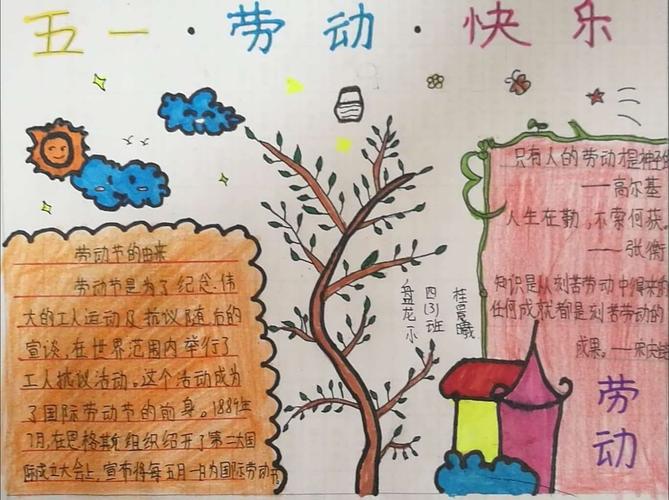 五一·劳动·快乐
劳动节的由来
劳动节是为了纪念伟
大的工人运动及抗议随后的
宣谈,在世界范围内举行了
工人抗议活动。这个活动成为
了国际劳动节的前身。1889年
7月,在恩格斯组织召开了第二国
际成立大会上,宣布将每五月一日为国际劳动
盘龙一小
四(3)班
只有人的劳动才是神
——高尔基
人生在勤,不索何获。
——张衡
知识是从刻苦劳动中得来
任何成就都是刻苦劳动的
成果。——宋庆
劳
动